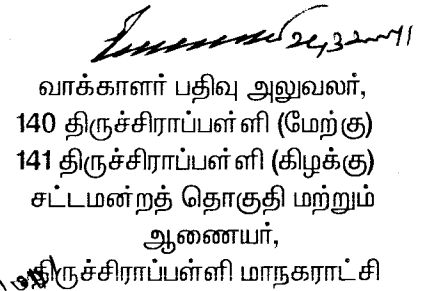 வாக்காளர் பதிவு அலுவலர்,
140 திருச்சிராப்பள்ளி (மேற்கு)
141 திருச்சிராப்பள்ளி (கிழக்கு)
சட்டமன்றத் தொகுதி மற்றும்
ஆணையர்,
திருச்சிராப்பள்ளி மாநகராட்சி